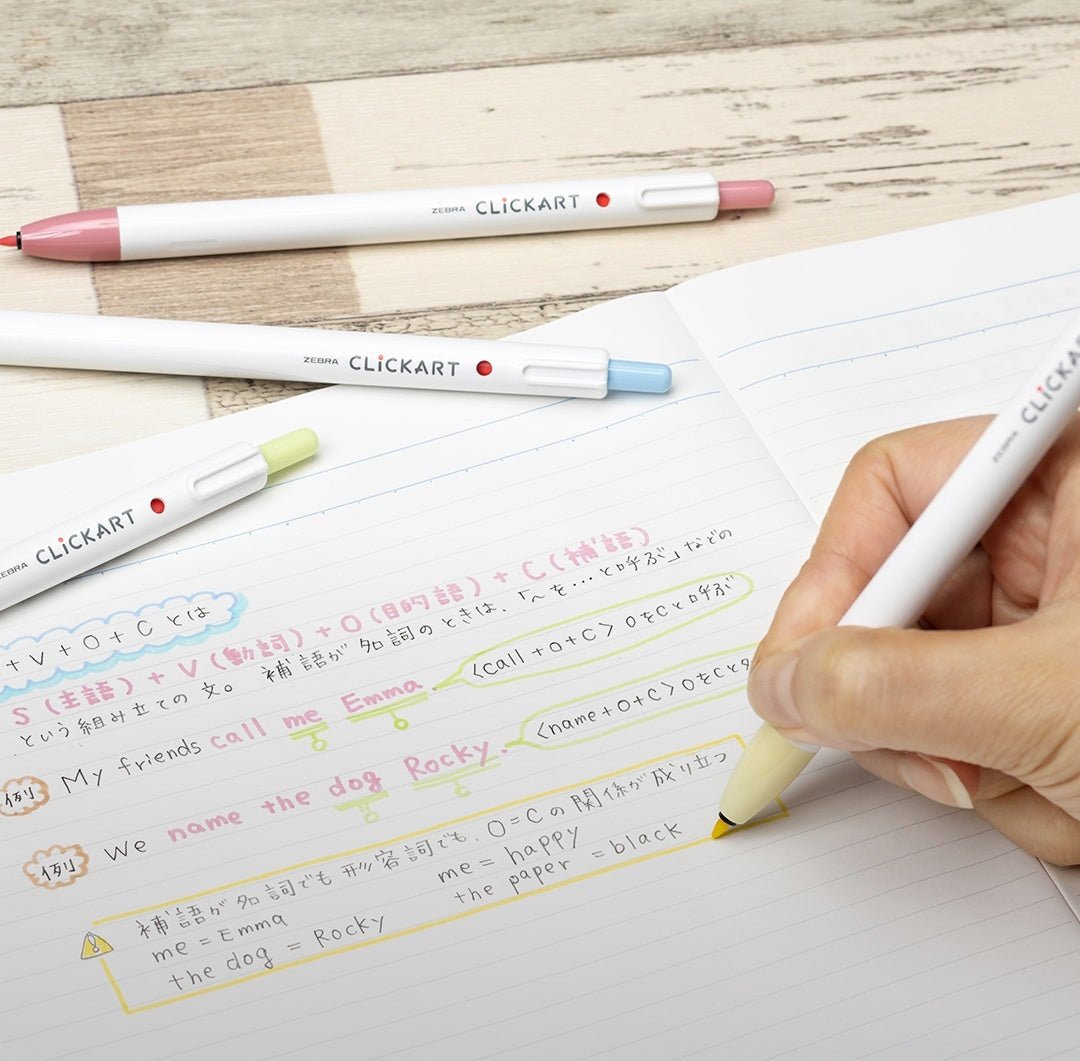 ZEBRA CLiCKART
ZEBRA CLiCKART
ZEBRA CLiCKART
ZEBRA CLiCKA
+ V + O + C とは
S (主語) + V (動詞) + O (目的語) + C (補語)
という組み立ての文。 補語が名詞のときは、「〜を…と呼ぶ」などの
<call + O + C> OをCと呼ぶ
例 My friends call me Emma.
<name + O + C> OをCと
例 We name the dog Rocky.
補語が名詞でも形容詞でも、O=Cの関係が成り立つ
me = Emma me = happy
the dog = Rocky the paper = black